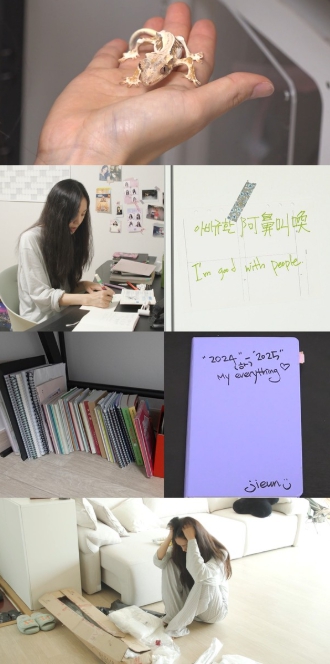 아비규환 阿鼻叫喚
I'm good with people.
"2024" ~ "2025"
My everything♡
jieun